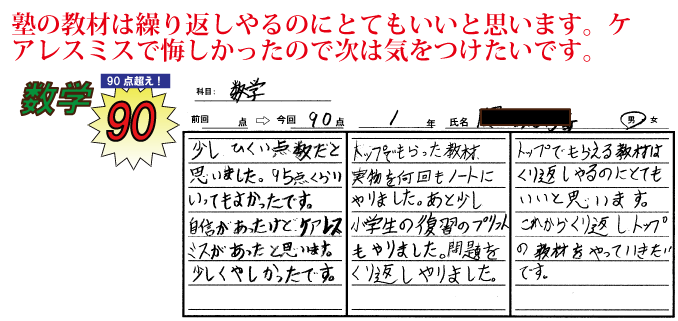 塾の教材は繰り返しやるのにとてもいいと思います。ケ
アレスミスで悔しかったので次は気をつけたいです。
90点超え！
数学
90
科目: 数学
前回 点 ⇨ 今回 90点 1 年 氏名 男 女
少しひくい点数だと
思いました。95点くらい
いってもよかったです。
自信があったけどケアレス
ミスがあったと思います。
少しくやしかったです。
トップでもらった教材、
実物を何回もノートに
やりました。あと少し
小学生の復習のプリント
もやりました。問題を
くり返しやりました。
トップでもらえる教材は
くり返しやるのにとても
いいと思います。
これからくり返しトップ
の教材をやっていきたい
です。